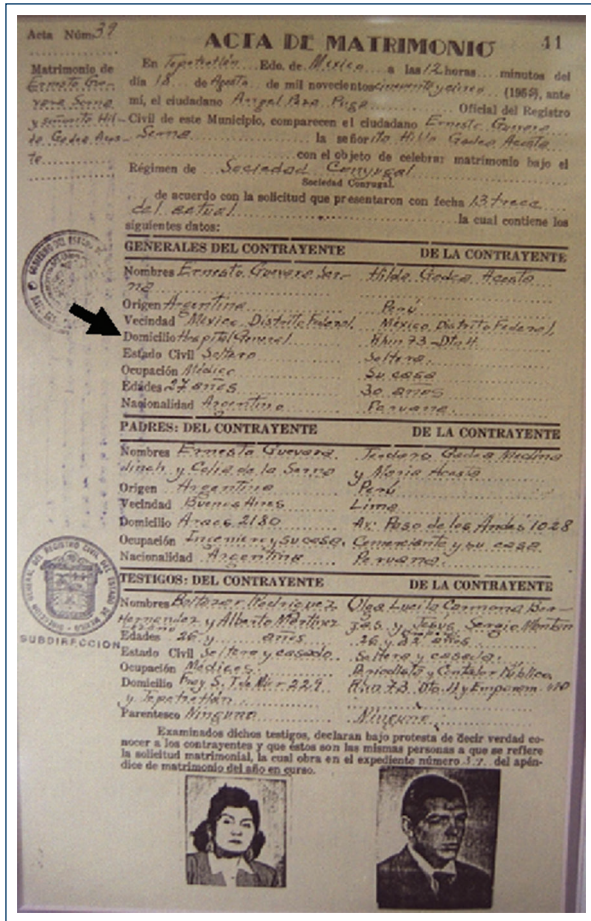 Acta Núm. 39
ACTA DE MATRIMONIO 41
Matrimonio de
Ernesto Gue-
vara Serna
y señorita Hil-
da Gadea Acos-
ta
En Tepotzotlán Edo. de México a las 12 horas minutos del
día 18 de Agosto de mil novecientos cincuenta y cinco (1955), ante
mí, el ciudadano Angel Oficial del Registro
Civil de este Municipio, comparecen el ciudadano Ernesto Guevara
Serna la señorita Hilda Gadea Acosta
con el objeto de celebrar matrimonio bajo el
Régimen de Sociedad Conyugal
Sociedad Conyugal
de acuerdo con la solicitud que presentaron con fecha 13 trece
del actual la cual contiene los
siguientes datos:
GENERALES DEL CONTRAYENTE DE LA CONTRAYENTE
Nombres Ernesto Guevara Ser- Hilda Gadea Acosta
na
Origen Argentina Perú
Vecindad México, Distrito Federal. México, Distrito Federal.
Domicilio Hospital General. Rhin 73-Dto 4.
Estado Civil Soltero Soltera.
Ocupación Médico Su casa
Edades 27 años 30 años
Nacionalidad Argentina Peruana.
PADRES: DEL CONTRAYENTE DE LA CONTRAYENTE
Nombres Ernesto Guevara Teodoro Gadea Medina
Linch y Celia de la Serna y María Acosta
Origen Argentina Perú
Vecindad Buenos Aires Lima
Domicilio Araoz 2180 Av. Paso de los Andes 1028
Ocupación Ingeniero y su casa. Comerciante y su casa
Nacionalidad Argentina Peruana.
TESTIGOS: DEL CONTRAYENTE DE LA CONTRAYENTE
Nombres Baltazar Rodríguez Olga Lucila Carmona Bor-
Hernández y Alberto Martínez jas y Jesús Sergio Montan
Edades 26 y años 26 y 32 años
Estado Civil Soltero y casado. Soltera y casado.
Ocupación Médicos Periodista y Contador Público
Domicilio Fray S. T. de Mier 229 Rhin 73. Dto.
y Tepotzotlán.
Parentesco Ninguno Ninguno
Examinados dichos testigos, declaran bajo protesta de decir verdad co-
nocer a los contrayentes y que éstos son las mismas personas a que se refiere
la solicitud matrimonial, la cual obra en el expediente número del apén-
dice de matrimonio del año en curso.
SUBDIRECCION